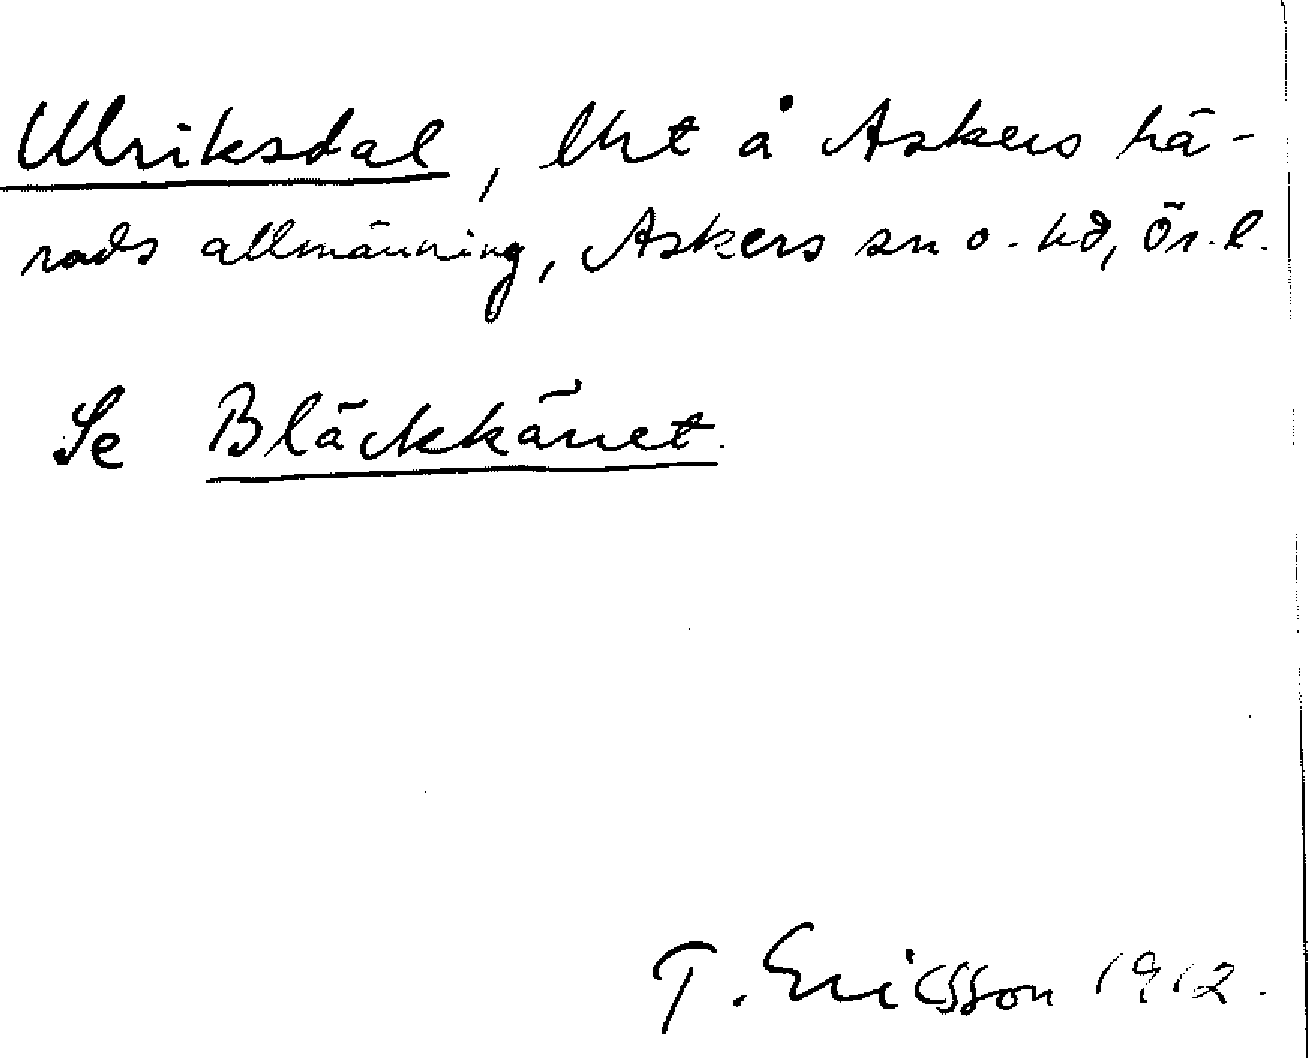 Ulriksdal, lht å Askers hä-
rads allmänning, Askers sn o. hd, Ör. l.
Se Bläckkänet.
T. Ericsson 1912.